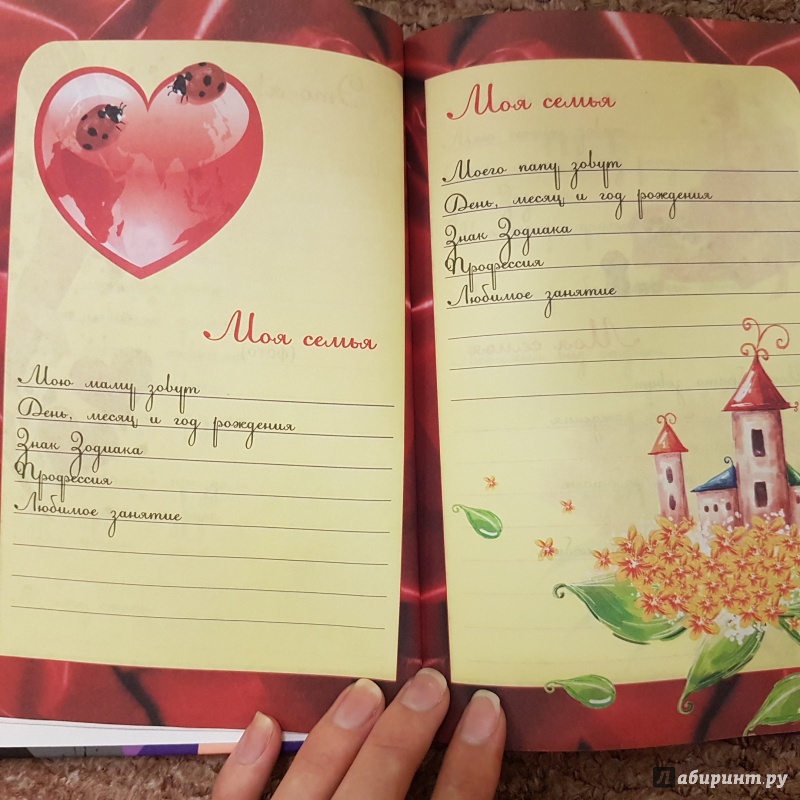 Моя семья
Мою маму зовут
День, месяц и год рождения
Знак Зодиака
Профессия
Любимое занятие
Моя семья
Моего папу зовут
День, месяц и год рождения
Знак Зодиака
Профессия
Любимое занятие
Лабиринт.ру